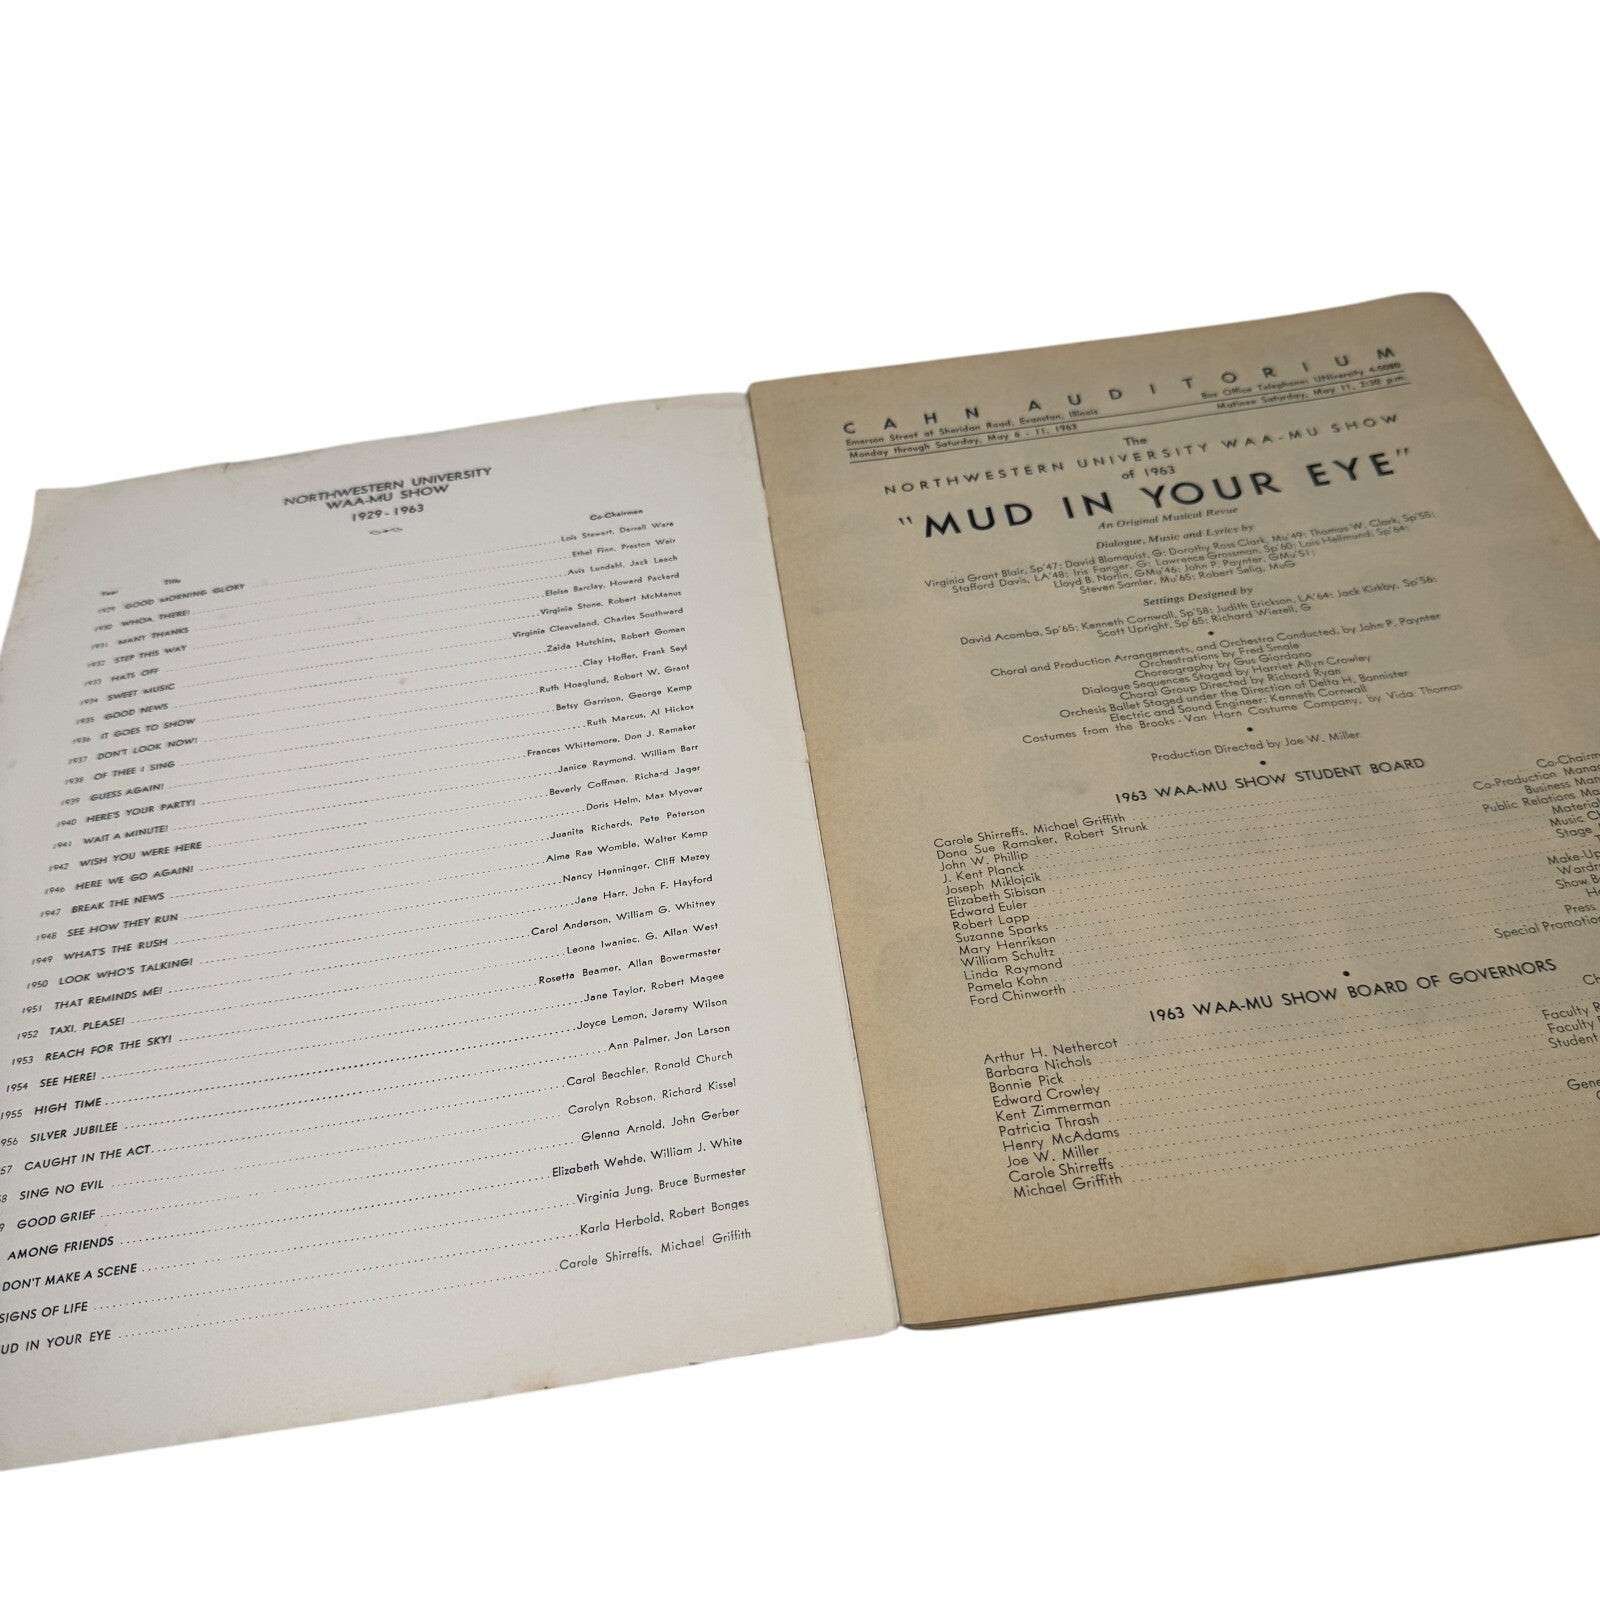 NORTHWESTERN UNIVERSITY
WAA-MU SHOW
1929 - 1963
Year Title Co-Chairmen
1929 GOOD MORNING GLORY Lois Stewart, Darrell Ware
1930 WHOA, THERE! Ethel Finn, Preston Weir
1931 MANY THANKS Avis Lundahl, Jack Leach
1932 STEP THIS WAY Eloise Barclay, Howard Packard
1933 HATS OFF Virginia Stone, Robert McManus
1934 SWEET MUSIC Virginia Cleaveland, Charles Southward
1935 GOOD NEWS Zaida Hutchins, Robert Goman
1936 IT GOES TO SHOW Clay Hoffer, Frank Seyl
1937 DON'T LOOK NOW! Ruth Hoaglund, Robert W. Grant
1938 OF THEE I SING Betsy Garrison, George Kemp
1939 GUESS AGAIN! Ruth Marcus, Al Hickox
1940 HERE'S YOUR PARTY! Frances Whittemore, Don J. Ramaker
1941 WAIT A MINUTE! Janice Raymond, William Barr
1942 WISH YOU WERE HERE Beverly Coffman, Richard Jager
1946 HERE WE GO AGAIN! Doris Helm, Max Myover
1947 BREAK THE NEWS Juanita Richards, Pete Peterson
1948 SEE HOW THEY RUN Alma Rae Womble, Walter Kemp
1949 WHAT'S THE RUSH Nancy Henninger, Cliff Mezey
1950 LOOK WHO'S TALKING! Jane Harr, John F. Hayford
1951 THAT REMINDS ME! Carol Anderson, William G. Whitney
1952 TAXI, PLEASE! Leona Iwaniec, G. Allan West
1953 REACH FOR THE SKY! Rosetta Beamer, Allan Bowermaster
1954 SEE HERE! Jane Taylor, Robert Magee
1955 HIGH TIME Joyce Lemon, Jeremy Wilson
956 SILVER JUBILEE Ann Palmer, Jon Larson
57 CAUGHT IN THE ACT Carol Beachler, Ronald Church
8 SING NO EVIL Carolyn Robson, Richard Kissel
9 GOOD GRIEF Glenna Arnold, John Gerber
AMONG FRIENDS Elizabeth Wehde, William J. White
DON'T MAKE A SCENE Virginia Jung, Bruce Burmester
SIGNS OF LIFE Karla Herbold, Robert Bonges
UD IN YOUR EYE Carole Shirreffs, Michael Griffith
CAHN AUDITORIUM
Emerson Street at Sheridan Road, Evanston, Illinois Box Office Telephone: UNiversity 4-5080
Monday through Saturday, May 6 - 11, 1963 Matinee Saturday, May 11, 2:30 p.m.
The
NORTHWESTERN UNIVERSITY WAA-MU SHOW
of 1963
"MUD IN YOUR EYE"
An Original Musical Revue
Dialogue, Music and Lyrics by
Virginia Grant Blair, Sp'47; David Blomquist, G; Dorothy Ross Clark, Mu'49; Thomas W. Clark, Sp'55;
Stafford Davis, LA'48; Iris Fanger, G; Lawrence Grossman, Sp'60; Lois Hellmund, Sp'64;
Lloyd B. Norlin, GMu'46; John P. Paynter, GMu'51;
Steven Samler, Mu'65; Robert Selig, MuG
Settings Designed by
David Acomba, Sp'65; Kenneth Cornwall, Sp'58; Judith Erickson, LA'64; Jack Kirkby, Sp'56;
Scott Upright, Sp'65; Richard Wiezell, G
Choral and Production Arrangements, and Orchestra Conducted, by John P. Paynter
Orchestrations by Fred Smale
Choreography by Gus Giordano
Dialogue Sequences Staged by Harriet Allyn Crowley
Choral Group Directed by Richard Ryan
Orchesis Ballet Staged under the Direction of Delta H. Bannister
Electric and Sound Engineer: Kenneth Cornwall
Costumes from the Brooks - Van Horn Costume Company, by Vida Thomas
Production Directed by Joe W. Miller
1963 WAA-MU SHOW STUDENT BOARD
Carole Shirreffs, Michael Griffith Co-Chairm
Dona Sue Ramaker, Robert Strunk Co-Production Manag
John W. Phillip Business Man
J. Kent Planck Public Relations Ma
Joseph Miklojcik Material
Elizabeth Sibisan Music C
Edward Euler Stage
Robert Lapp T
Suzanne Sparks Make-Up
Mary Henrikson Wardr
William Schultz Show B
Linda Raymond H
Pamela Kohn Press
Ford Chinworth Special Promotion
1963 WAA-MU SHOW BOARD OF GOVERNORS
Arthur H. Nethercot Ch
Barbara Nichols
Bonnie Pick Faculty R
Edward Crowley Faculty
Kent Zimmerman Student
Patricia Thrash
Henry McAdams Gene
Joe W. Miller
Carole Shirreffs
Michael Griffith